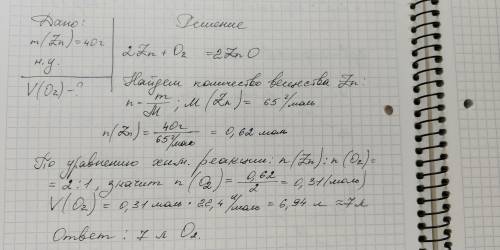 Дано:
m(Zn)=40г
н.у.
V(O₂)-?
Решение
2Zn + O₂ = 2ZnO
Найдем количество вещества Zn:
n = m/M; M(Zn) = 65 г/моль
n(Zn) = 40г/65 г/моль = 0,62 моль
По уравнению хим. реакции: n(Zn):n(O₂)=
= 2:1, значит n(O₂) = 0,62/2 = 0,31(моль)
V(O₂) = 0,31 моль · 22,4 л/моль = 6,94 л ≈ 7л
Ответ: 7 л O₂.